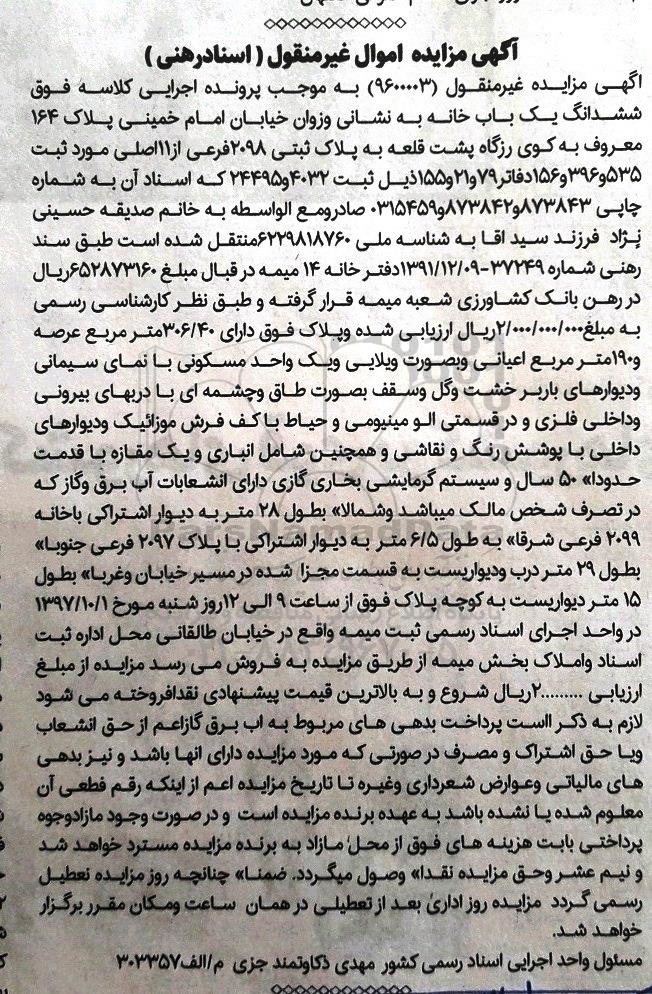 آگهی مزایده اموال غیرمنقول (اسنادرهنی)
اگهی مزایده غیرمنقول (۹۶۰۰۰۰۳) به موجب پرونده اجرایی کلاسه فوق
ششدانگ یک باب خانه به نشانی وزوان خیابان امام خمینی پلاک ۱۶۴
معروف به کوی رزگاه پشت قلعه به پلاک ثبتی ۲۰۹۸فرعی از۱۱اصلی مورد ثبت
۵۳۵و۳۹۶و۱۵۶دفاتر۷۹و۲۱و۱۵۵ذیل ثبت ۴۰۳۲و۲۴۴۹۵ که اسناد آن به شماره
چاپی ۸۷۳۸۴۳و۸۷۳۸۴۲و۰۳۱۵۴۵۹ صادرومع الواسطه به خانم صدیقه حسینی
نژاد فرزند سید اقا به شناسه ملی ۶۲۲۹۸۱۸۷۶۰منتقل شده است طبق سند
رهنی شماره ۳۷۲۴۹-۱۳۹۱/۱۲/۰۹دفتر خانه ۱۴ میمه در قبال مبلغ ۶۵۲۸۷۳۱۶۰ریال
در رهن بانک کشاورزی شعبه میمه قرار گرفته و طبق نظر کارشناسی رسمی
به مبلغ۲/۰۰۰/۰۰۰/۰۰۰ریال ارزیابی شده وپلاک فوق دارای ۳۰۶/۴۰متر مربع عرصه
و۱۹۰متر مربع اعیانی وبصورت ویلایی ویک واحد مسکونی با نمای سیمانی
ودیوارهای باربر خشت وگل وسقف بصورت طاق وچشمه ای با دربهای بیرونی
وداخلی فلزی و در قسمتی الو مینیومی و حیاط با کف فرش موزائیک ودیوارهای
داخلی با پوشش رنگ و نقاشی و همچنین شامل انباری و یک مقازه با قدمت
حدودا» ۵۰ سال و سیستم گرمایشی بخاری گازی دارای انشعابات آب برق وگاز که
در تصرف شخص مالک میباشد وشمالا» بطول ۲۸ متر به دیوار اشتراکی باخانه
۲۰۹۹ فرعی شرقا» به طول ۶/۵ متر به دیوار اشتراکی با پلاک ۲۰۹۷ فرعی جنوبا»
بطول ۲۹ متر درب ودیواریست به قسمت مجزا شده در مسیر خیابان وغربا» بطول
۱۵ متر دیواریست به کوچه پلاک فوق از ساعت ۹ الی ۱۲روز شنبه مورخ ۱۳۹۷/۱۰/۱
در واحد اجرای اسناد رسمی ثبت میمه واقع در خیابان طالقانی محل اداره ثبت
اسناد واملاک بخش میمه از طریق مزایده به فروش می رسد مزایده از مبلغ
ارزیابی ۲۰۰۰۰۰۰۰۰۰ریال شروع و به بالاترین قیمت پیشنهادی نقدافروخته می شود
لازم به ذکر ااست پرداخت بدهی های مربوط به اب برق گازاعم از حق انشعاب
ویا حق اشتراک و مصرف در صورتی که مورد مزایده دارای انها باشد و نیز بدهی
های مالیاتی وعوارض شعرداری وغیره تا تاریخ مزایده اعم از اینکه رقم قطعی آن
معلوم شده یا نشده باشد به عهده برنده مزایده است و در صورت وجود مازادوجوه
پرداختی بابت هزینه های فوق از محل مازاد به برنده مزایده مسترد خواهد شد
و نیم عشر وحق مزایده نقدا» وصول میگردد. ضمنا» چنانچه روز مزایده تعطیل
رسمی گردد مزایده روز اداری بعد از تعطیلی در همان ساعت ومکان مقرر برگزار
خواهد شد.
مسئول واحد اجرایی اسناد رسمی کشور مهدی ذکاوتمند جزی م/الف۳۰۳۳۵۷